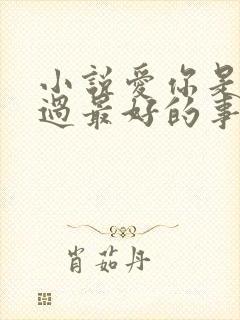 小說愛你是
過最好的事
肖茹丹